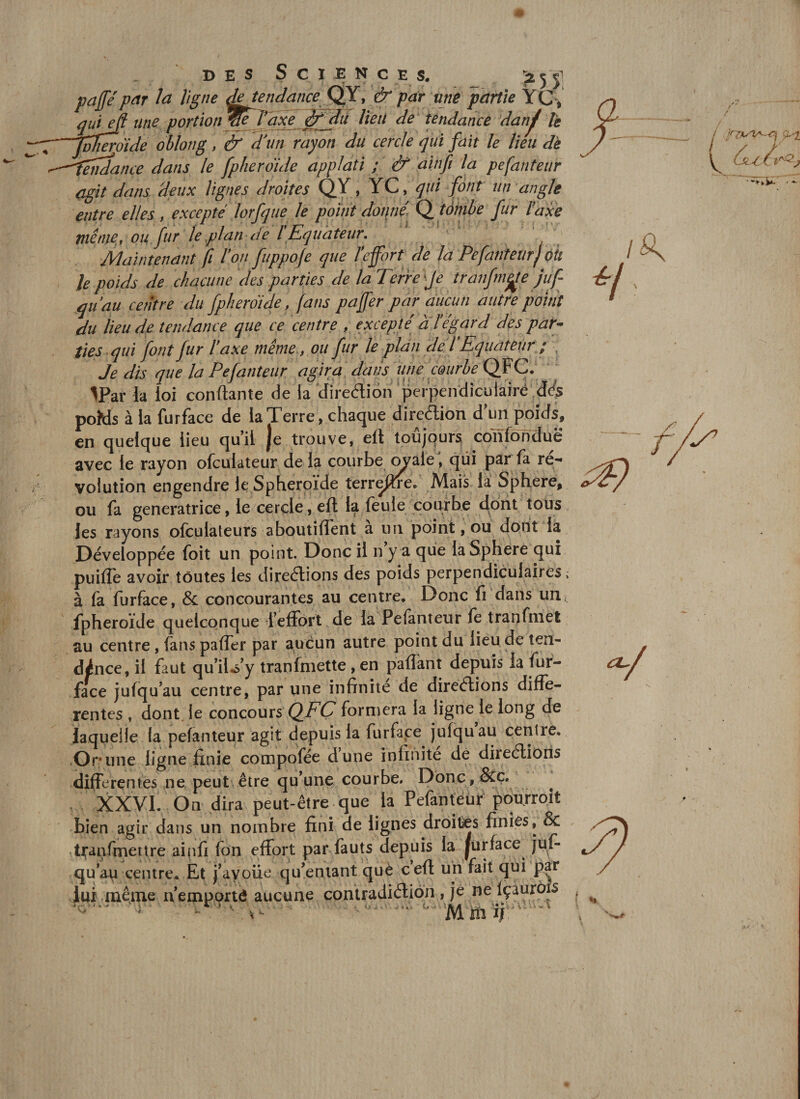 DES SCIENCES. 255
passé par la ligne de tendance QY, & par une partie YC,
qui est une portion de l'axe & du lieu de tendance dans le
spheroïde oblong, & d'un rayon du cercle qui fait le lieu de
tendance dans le spheroïde applati ; & ainsi la pesanteur
agit dans deux lignes droites QY, YC, qui font un angle
entre elles, excepté lorsque le point donné Q tombe sur l'axe
même, ou sur le plan de l'Equateur.
Maintenant si l'on suppose que l'effort de la Pesanteur, ou
le poids de chacune des parties de la Terre se transmete jus-
qu'au centre du spheroïde, sans passer par aucun autre point
du lieu de tendance que ce centre, excepté à l'égard des par-
ties qui sont sur l'axe même, ou sur le plan de l'Equateur ;
Je dis que la Pesanteur agira dans une courbe QFC.
Par la loi constante de la direction perpendiculaire des
poids à la surface de la Terre, chaque direction d'un poids,
en quelque lieu qu'il se trouve, est toûjours confonduë
avec le rayon osculateur de la courbe ovale, qui par sa ré-
volution engendre le Spheroïde terrestre. Mais la Sphere,
ou sa generatrice, le cercle, est la seule courbe dont tous
les rayons osculateurs aboutissent à un point, ou dont la
Développée soit un point. Donc il n'y a que la Sphere qui
puisse avoir toutes les directions des poids perpendiculaires
à sa surface, & concourantes au centre. Donc si dans un
spheroïde quelconque l'effort de la Pesanteur se transmet
au centre, sans passer par aucun autre point du lieu de ten-
dance, il faut qu'il s'y transmette, en passant depuis la sur-
face jusqu'au centre, par une infinité de directions diffe-
rentes, dont le concours QFC formera la ligne le long de
laquelle la pesanteur agit depuis la surface jusqu'au centre.
Or une ligne finie composée d'une infinité de directions
differentes ne peut être qu'une courbe. Donc, &c.
XXVI. On dira peut-être que la Pesanteur pourroit
bien agir dans un nombre fini de lignes droites finies, &
transmettre ainsi son effort par sauts depuis la surface jus-
qu'au centre. Et j'avoüe qu'entant que c'est un fait qui par
lui même n'emporte aucune contradiction, je ne sçaurois
M m ij